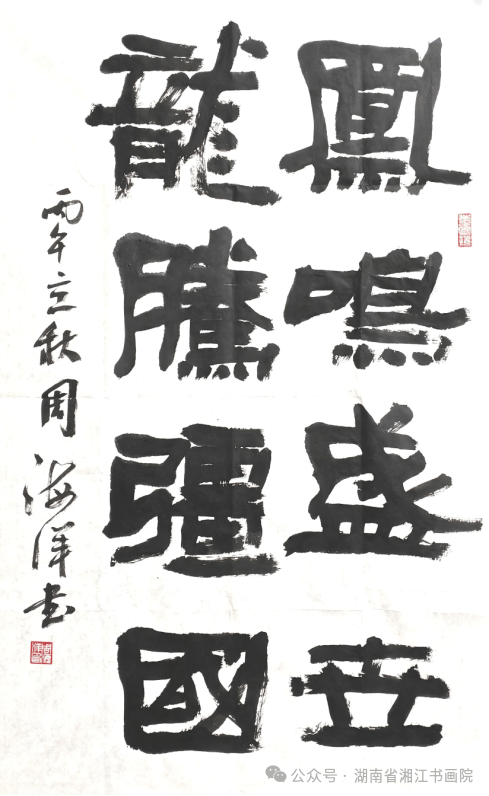 鳳鳴盛世
龍騰彊國
丙午立秋周海洋書
公众号 · 湖南省湘江书画院